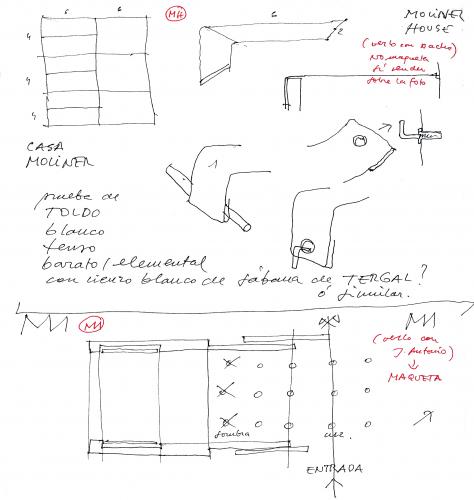 6 6
MH
6
2
MOLINER
HOUSE
(verlo con Nacho)
NO maqueta
sí render
sobre la foto
4
4
CASA
MOLINER
1
prueba de
TOLDO
blanco
tenso
barato/elemental
con lienzo blanco de sábana de TERGAL?
ó similar.
MH
(verlo con
J. Antonio)
MAQUETA
sombra
luz.
ENTRADA